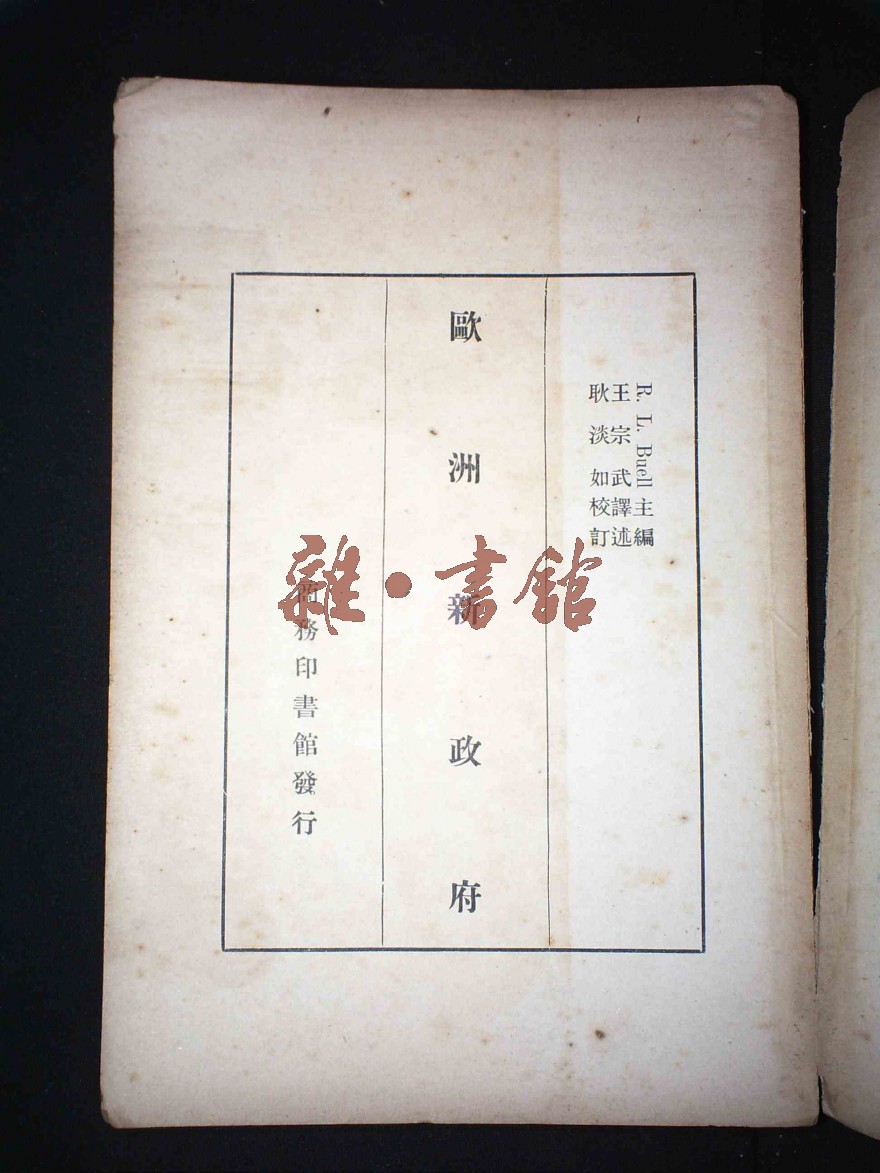 R. L. Buell 主編
王宗武譯述
耿淡如校訂
歐洲新政府
商務印書館發行
雜·書館